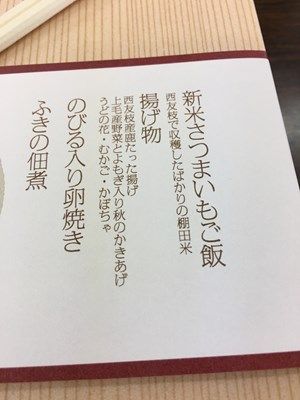 新米さつまいもご飯
西友枝で収穫したばかりの棚田米
揚げ物
西友枝産鹿たった揚げ
上毛産野菜とよもぎ入り秋のかきあげ
うどの花・むかご・かぼちゃ
のびる入り卵焼き
ふきの佃煮